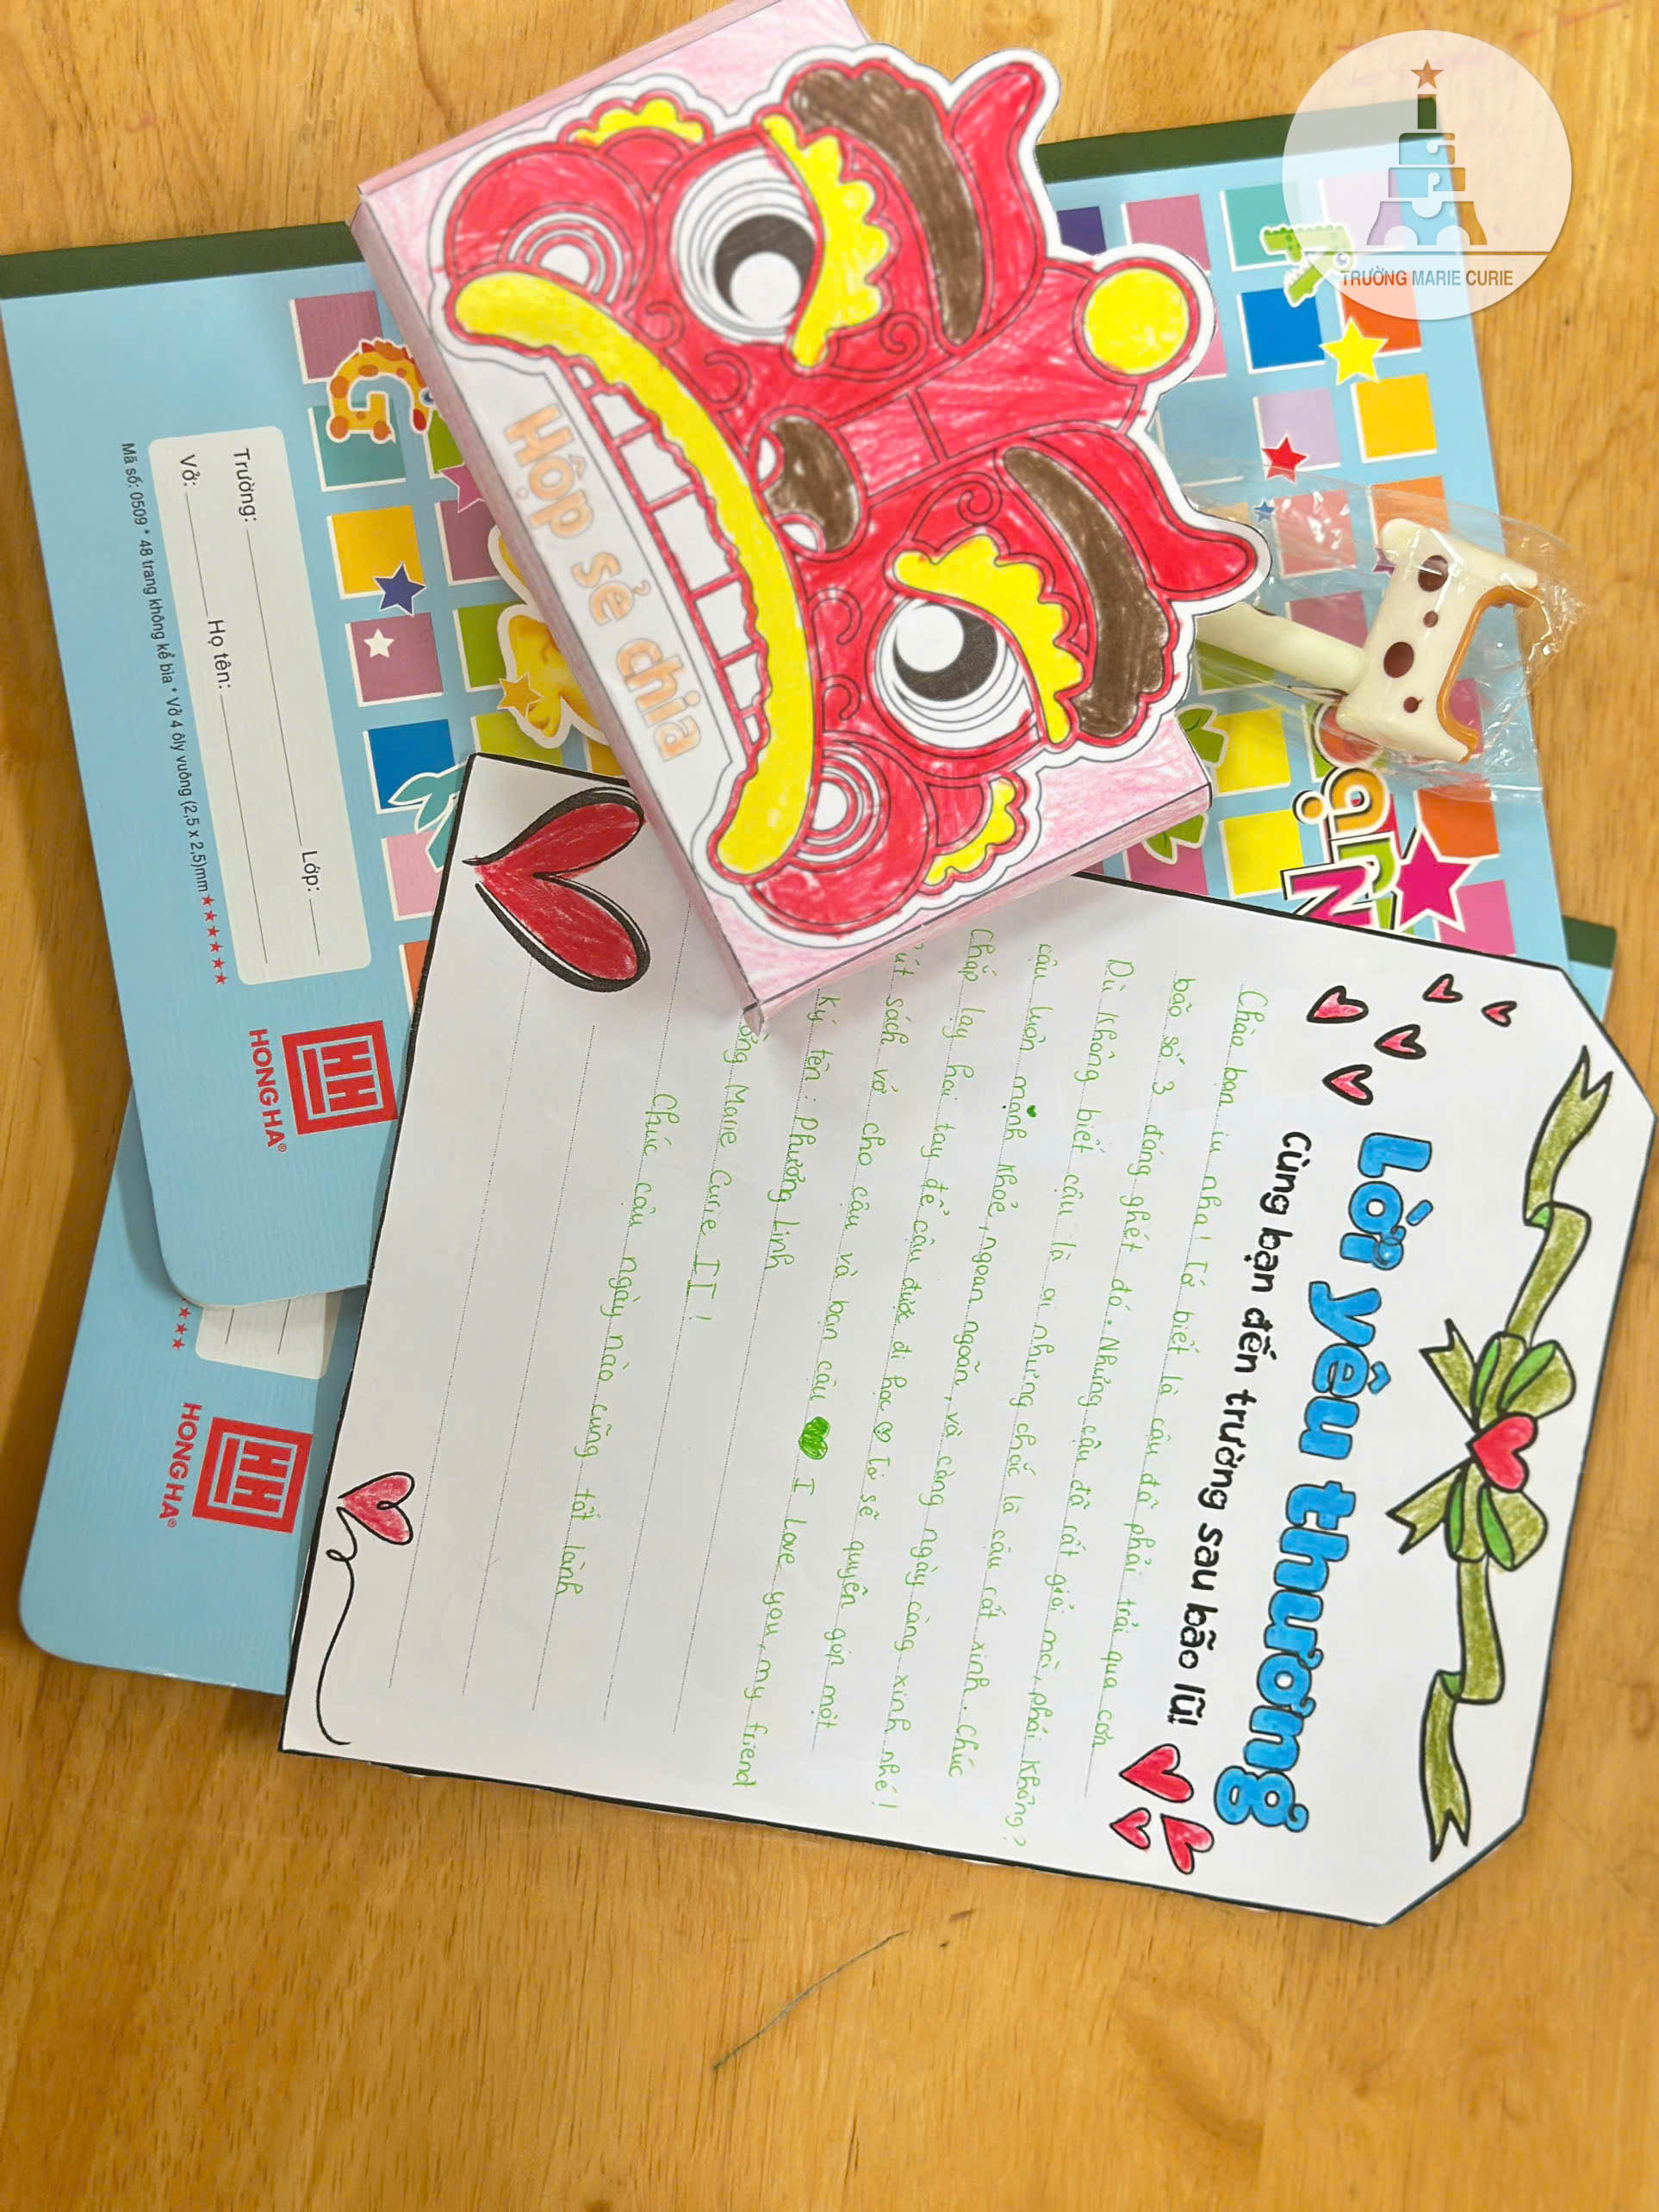 TRƯỜNG MARIE CURIE
Hộp sẻ chia
Trường: Lớp:
Vở: Họ tên:
Mã số: 0509 * 48 trang không kể bìa * Vở 4 ôly vuông (2,5 x 2,5)mm
HH
HONG HA®
HH
HONG HA®
Lời yêu thương
Cùng bạn đến trường sau bão lũ!
Chào bạn iu nha! Tớ biết là cậu đã phải trải qua cơn
bão số 3 đáng ghét đó. Nhưng cậu đã rất giỏi mà, phải không?
Dù không biết cậu là ai nhưng chắc là cậu rất xinh. Chúc
cậu luôn mạnh khỏe, ngoan ngoãn, và càng ngày càng xinh nhé!
Chắp tay hai tay để cậu được đi học Tớ sẽ quyên góp một
út sách vở cho cậu và bạn cậu I Love you, my friend
Ký tên: Phương Linh
ờng Marie Curie II!
Chúc cậu ngày nào cũng tốt lành